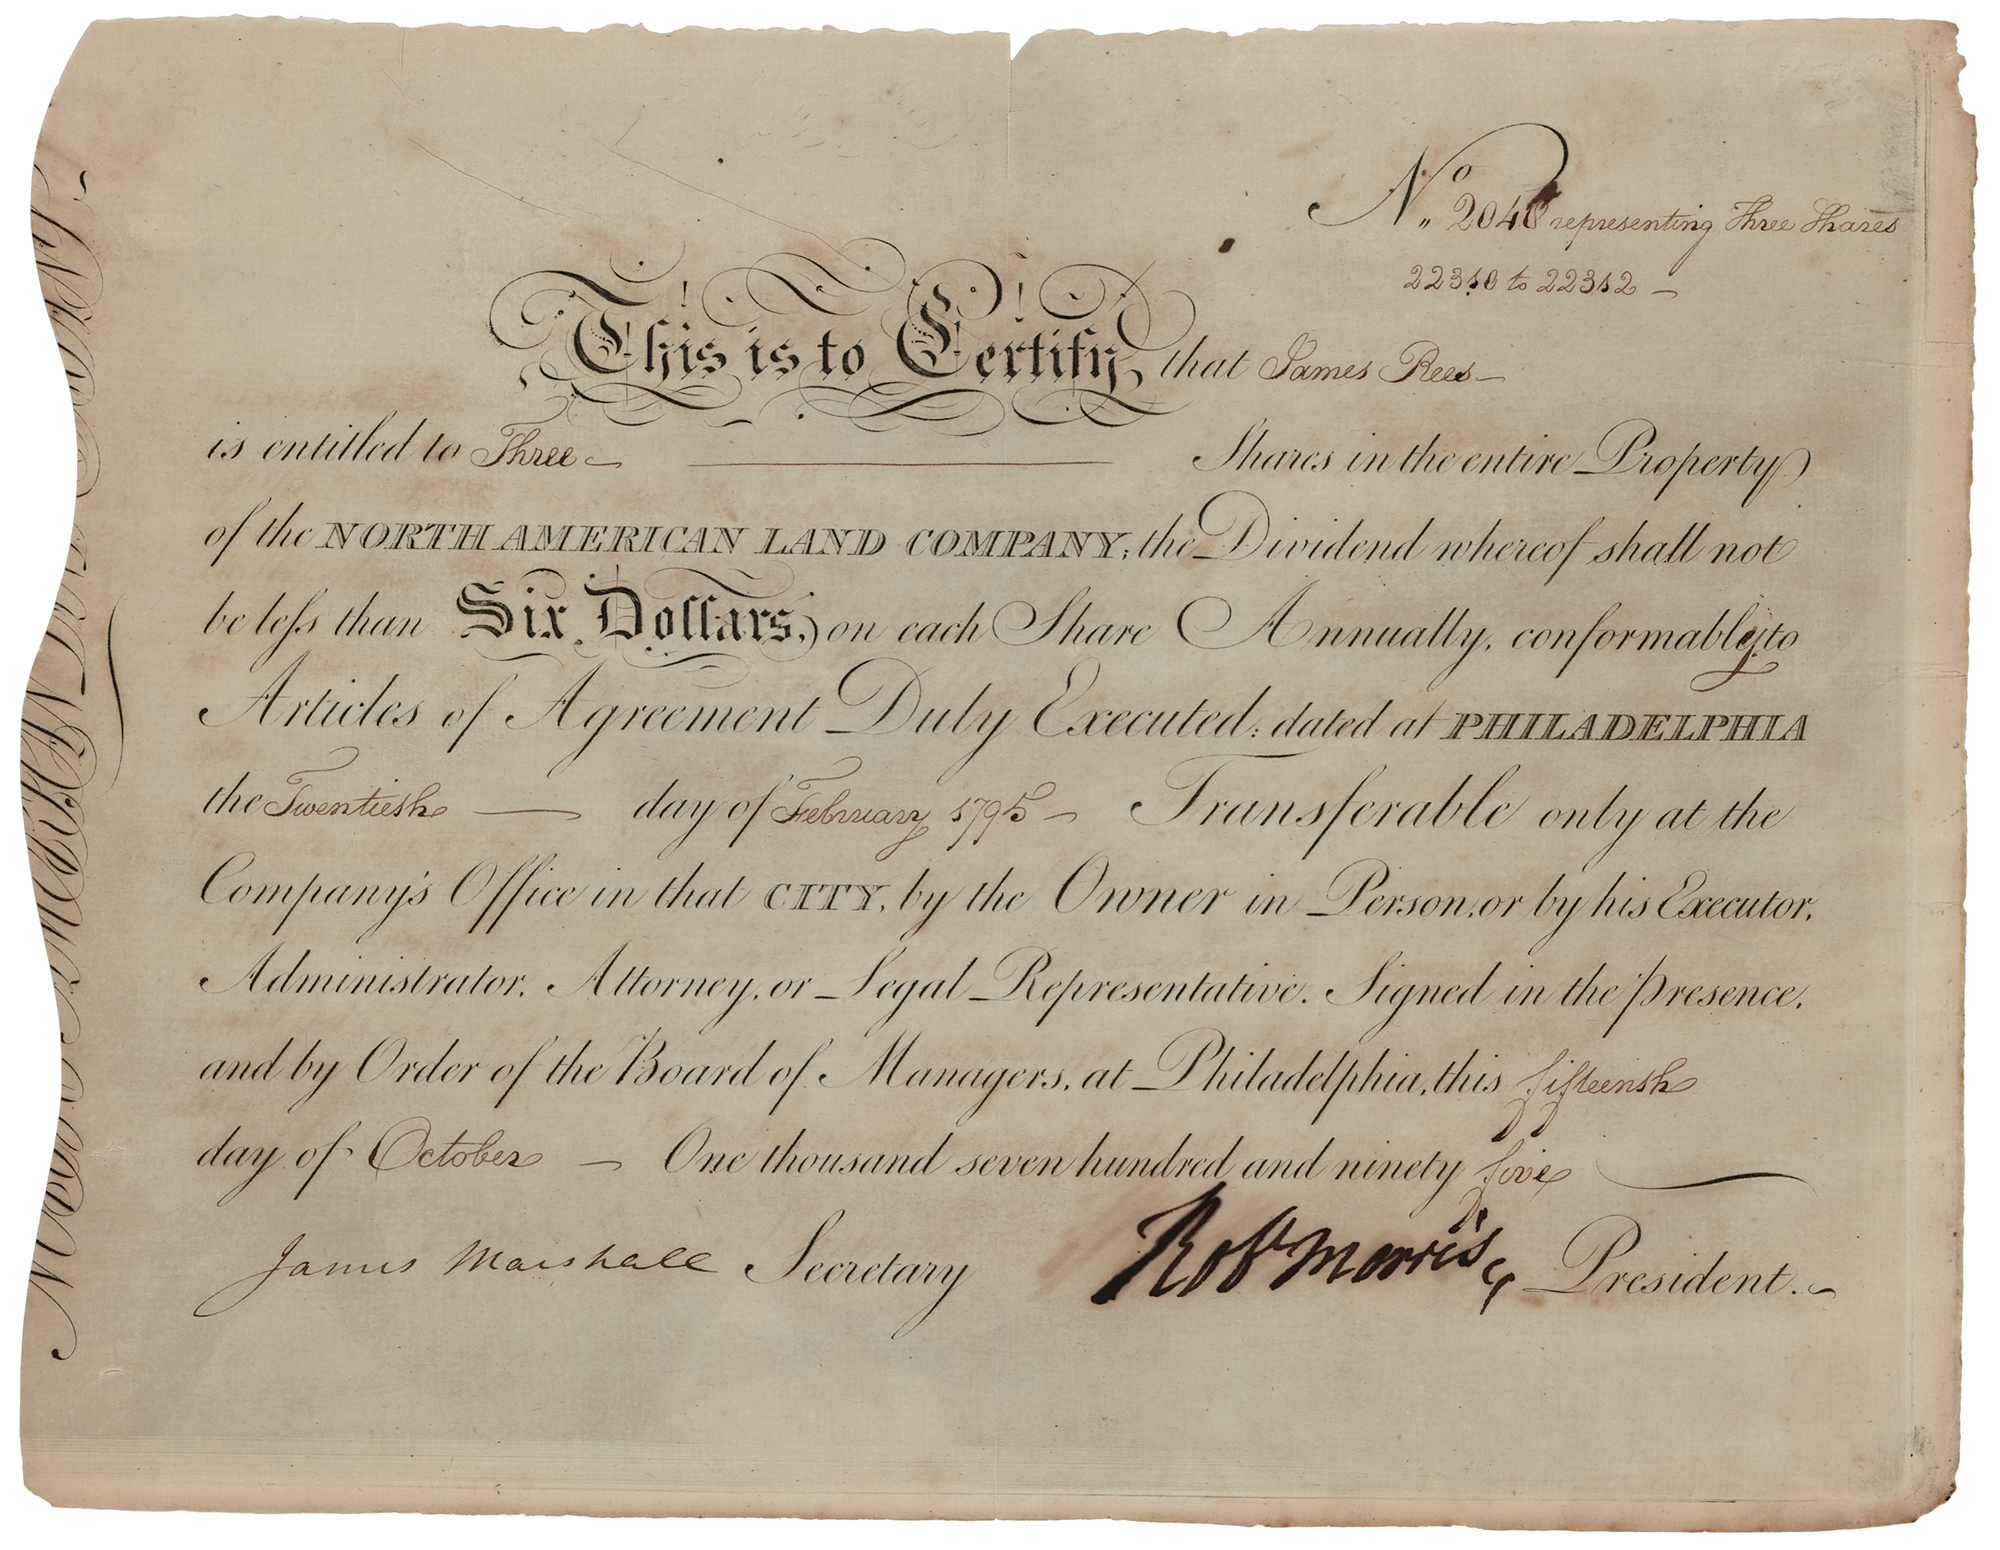 No. representing Three Shares
22310 to 22312
This is to Certify, that James Rees
is entitled to Three Shares in the entire Property
of the NORTH AMERICAN LAND COMPANY; the Dividend whereof shall not
be leſs than Six Dollars, on each Share Annually, conformably to
Articles of Agreement Duly Executed: dated at PHILADELPHIA
the Twentieth day of February 1795 Transferable only at the
Company's Office in that CITY, by the Owner in Person, or by his Executor,
Administrator, Attorney, or Legal Representative. Signed in the presence,
and by Order of the Board of Managers, at Philadelphia, this fifteenth
day of October One thousand seven hundred and ninety five
James Marshall Secretary Robt Morris President.